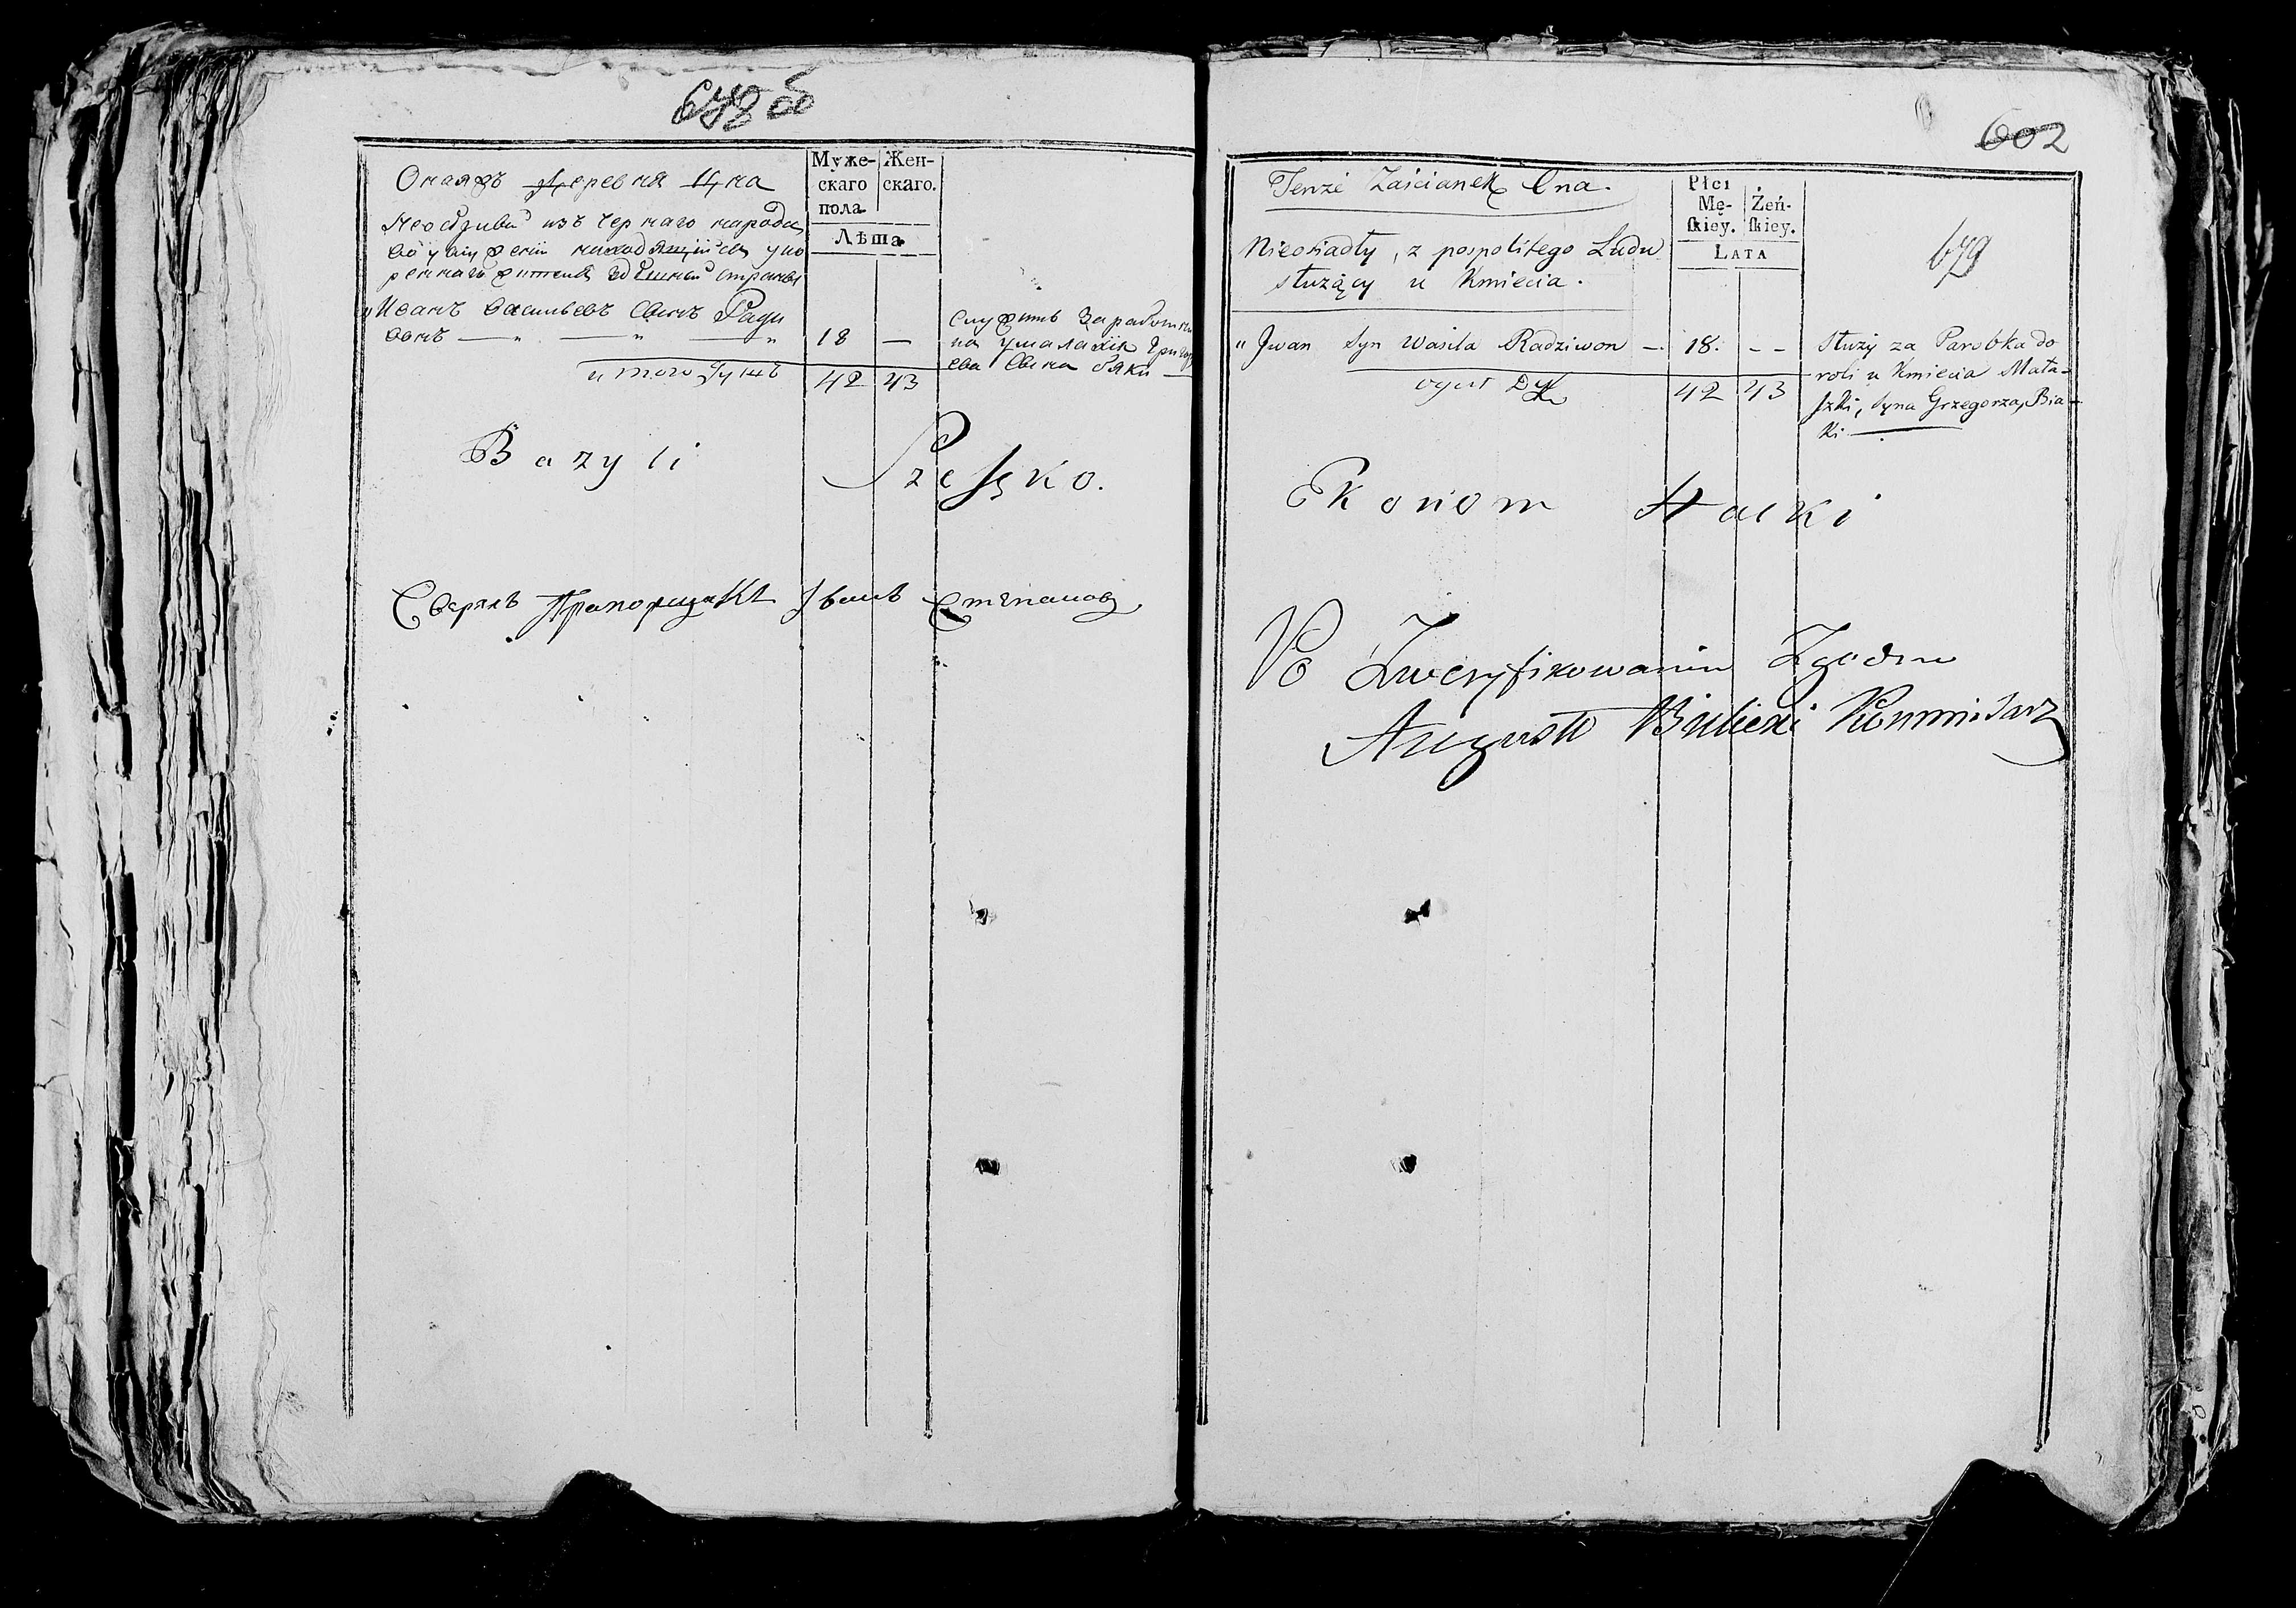 678 об
Онаяжъ деревня Цна
Муже-
скаго
пола
Жен-
скаго.
Лѣта
Неосѣлый изъ чернаго народа
въ услуженіи находящійся у ко
реннаго жителя здѣшней страны
"Иванъ Васильевъ Сынъ Ради
вонъ — " — " — "
18 —
служитъ за работни
ка у Малашки Григор
ева Сына Бяки —
итого душъ 42 43
Bazyli Szeszko.
Свѣрялъ Прапорщикъ Іванъ Степановъ
602
679
Tenże Zaścianek Cna.
Płci
Mę-
skiey.
Żeń-
skiey.
Lata
Nieosiadły, z pospolitego Ludu
służący u Kmiecia.
"Jwan Syn Wasila Radziwon —. 18. - -
służy za Parobka do
roli u Kmiecia Mała-
szki, syna Grzegorza, Bia-
ki —
ogół 42 43
Ekonom Halki
Po Zweryfikowaniu Zgodno
August Bulicki Kommisarz